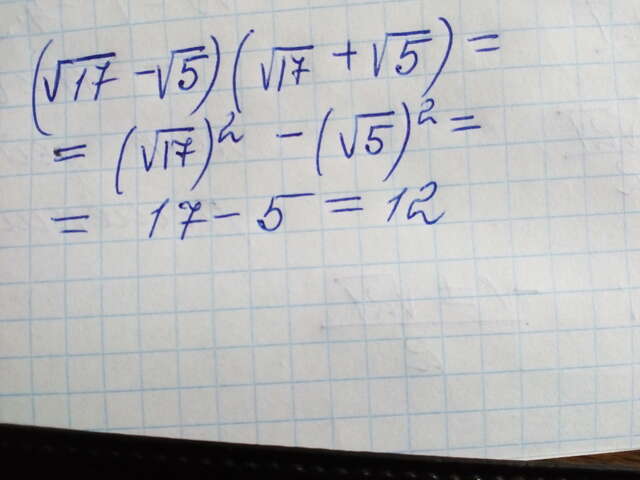 (√17 - √5)(√17 + √5) =
= (√17)² - (√5)² =
= 17 - 5 = 12